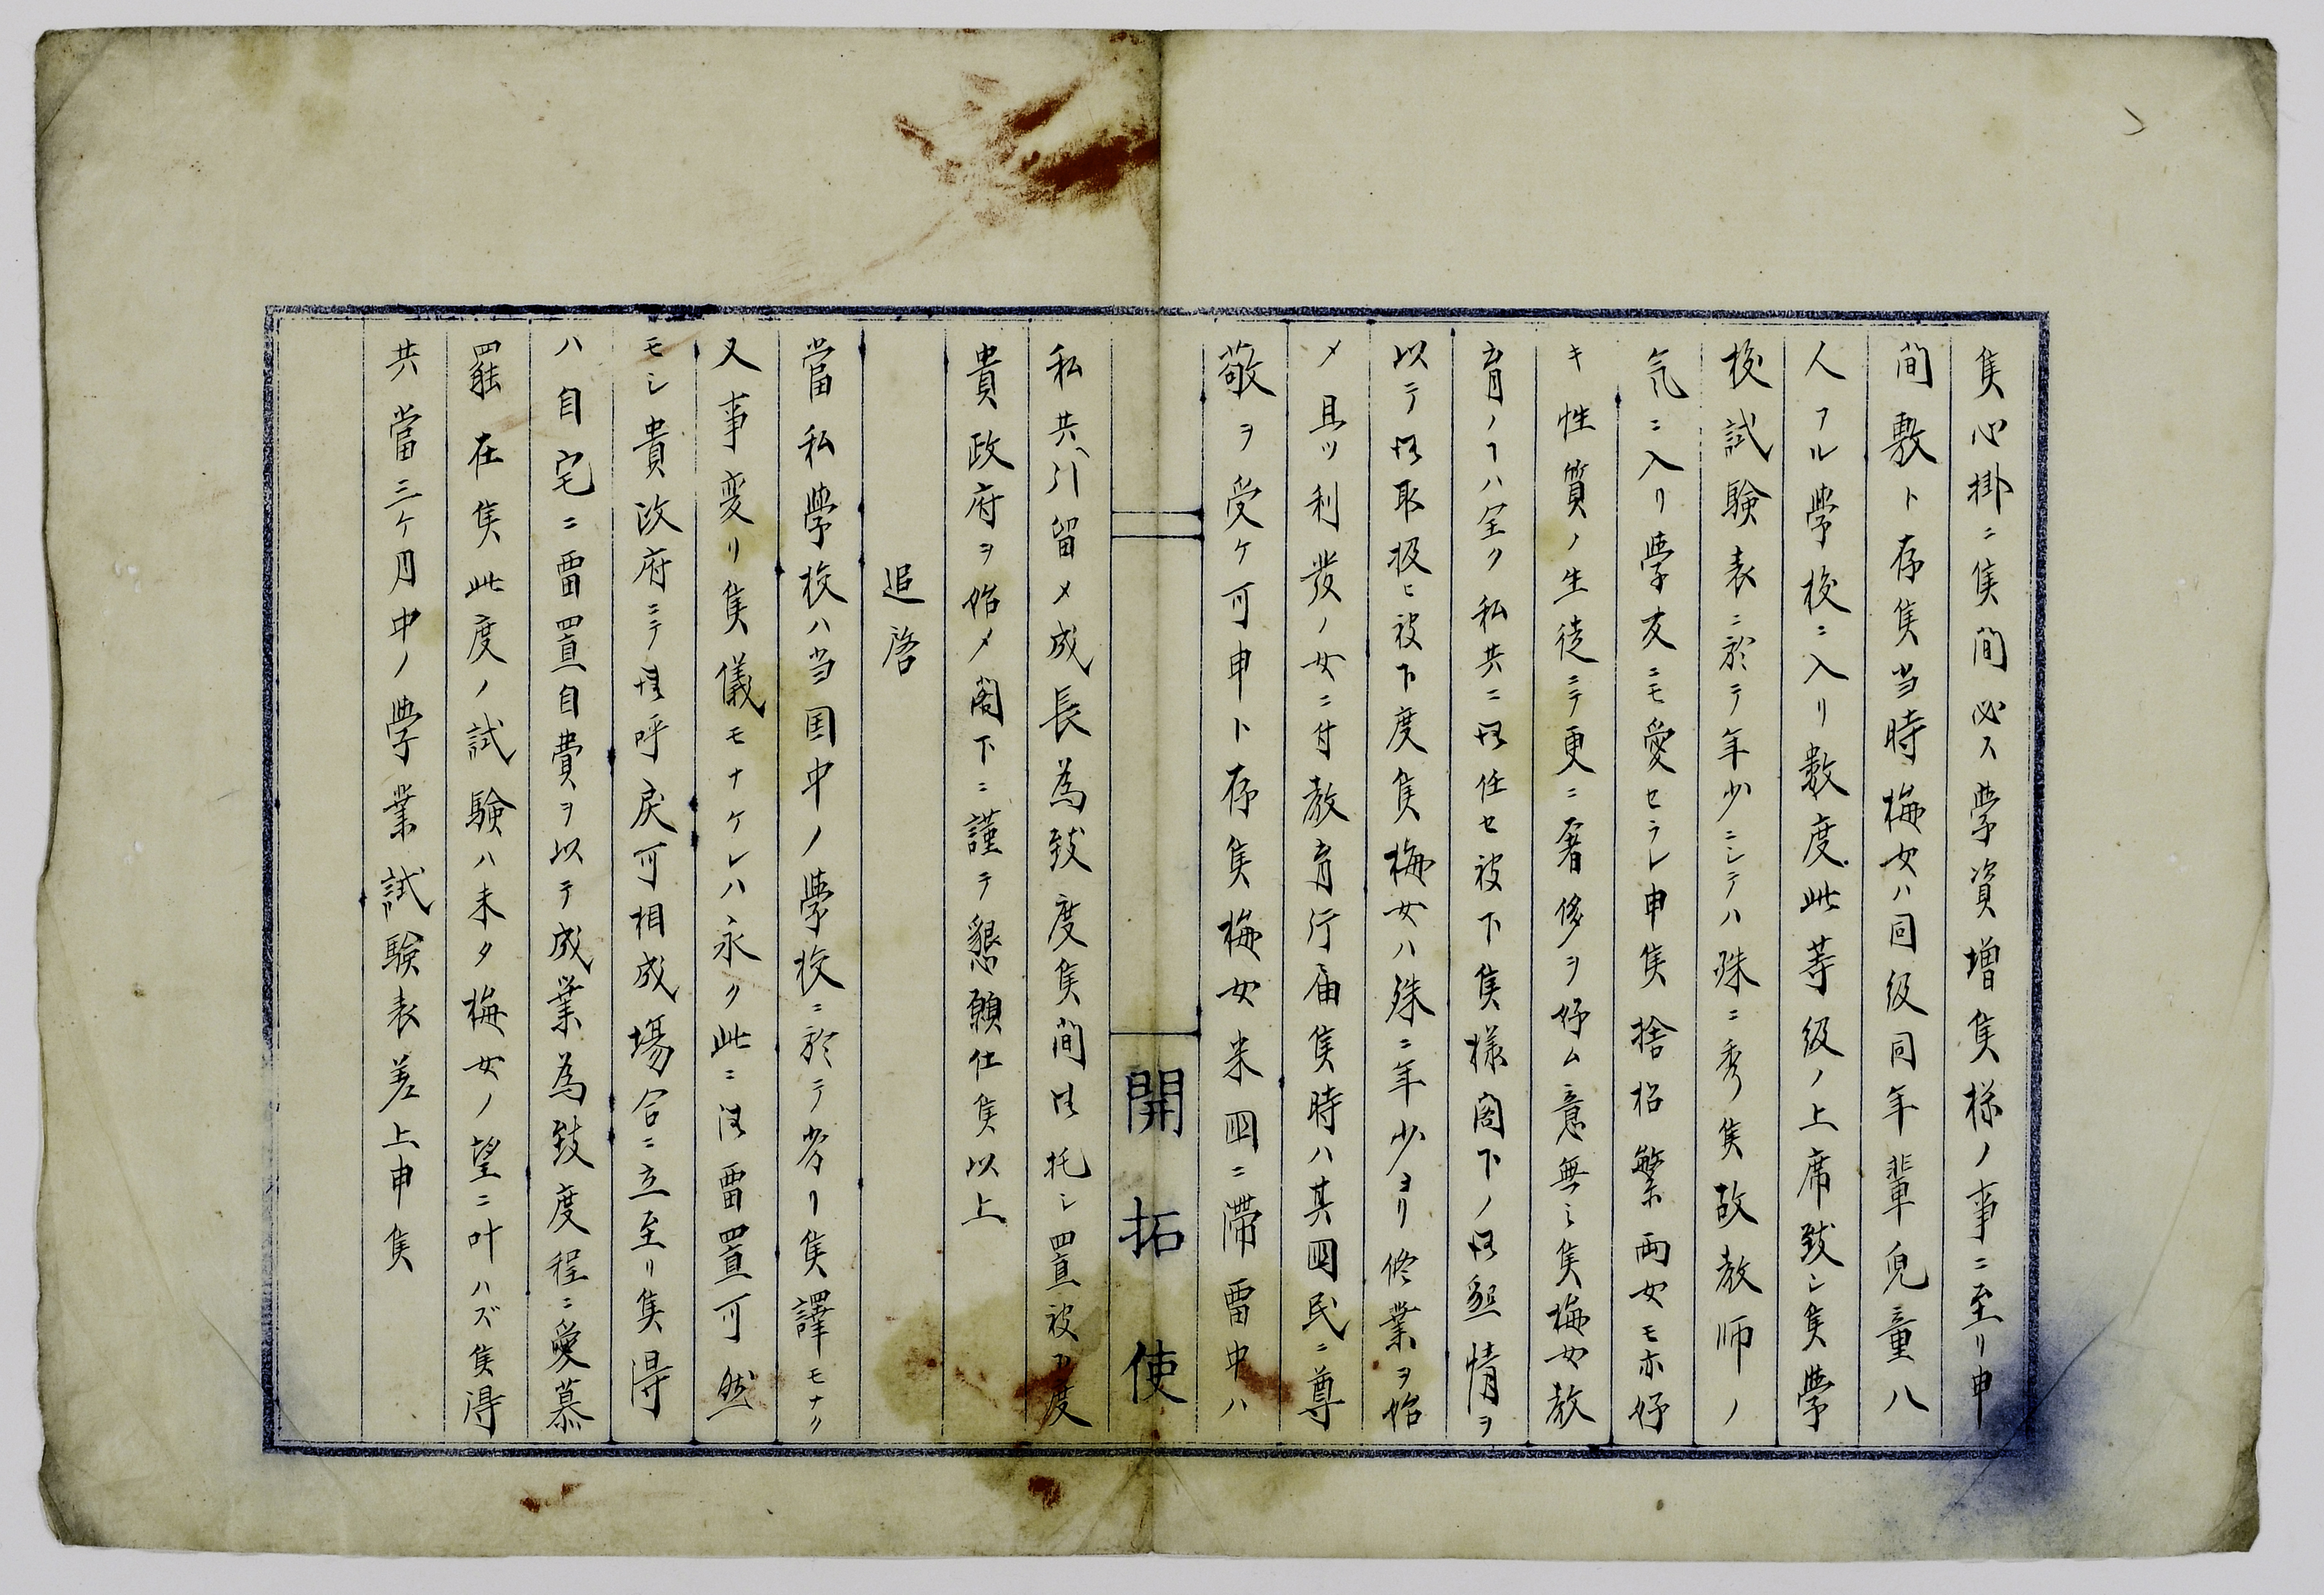 候心掛ニ候間必ス學資増候様ノ事ニ至リ申
間敷ト存候当時梅女ハ同級同年輩兒童八
人アル學校ニ入リ數度此等級ノ上席致シ候學
校試験表ニ於テ年少ニシテハ殊ニ秀候故教师ノ
気ニ入リ學友ニモ愛セラレ申候捨松繁両女モ亦好
キ性質ノ生徒ニテ更ニ奢侈ヲ好ム意無之候梅女教
育ノヿハ全ク私共ニ御任セ被下候様閣下ノ御懇情ヲ
以テ御取扱ヒ被下度候梅女ハ殊ニ年少ヨリ修業ヲ始
メ且ツ利發ノ女ニ付教育行届候時ハ其國民ニ尊
敬ヲ受ケ可申ト存候梅女米國ニ滞留中ハ
開拓使
私共ヘ引留メ成長為致度候間御托シ置被下度
貴政府ヲ始メ閣下ニ謹テ懇願仕候以上
追啓
當私學校ハ当国中ノ學校ニ於テ劣リ候譯モナク
又事変リ候儀モナケレハ永ク此ニ御留置可然
モシ貴政府ニテ御呼戻可相成場合ニ立至リ候得
ハ自宅ニ留置自費ヲ以テ成業為致度程ニ愛慕
罷在候此度ノ試験ハ未タ梅女ノ望ニ叶ハズ候得
共當三ケ月中ノ學業試験表差上申候